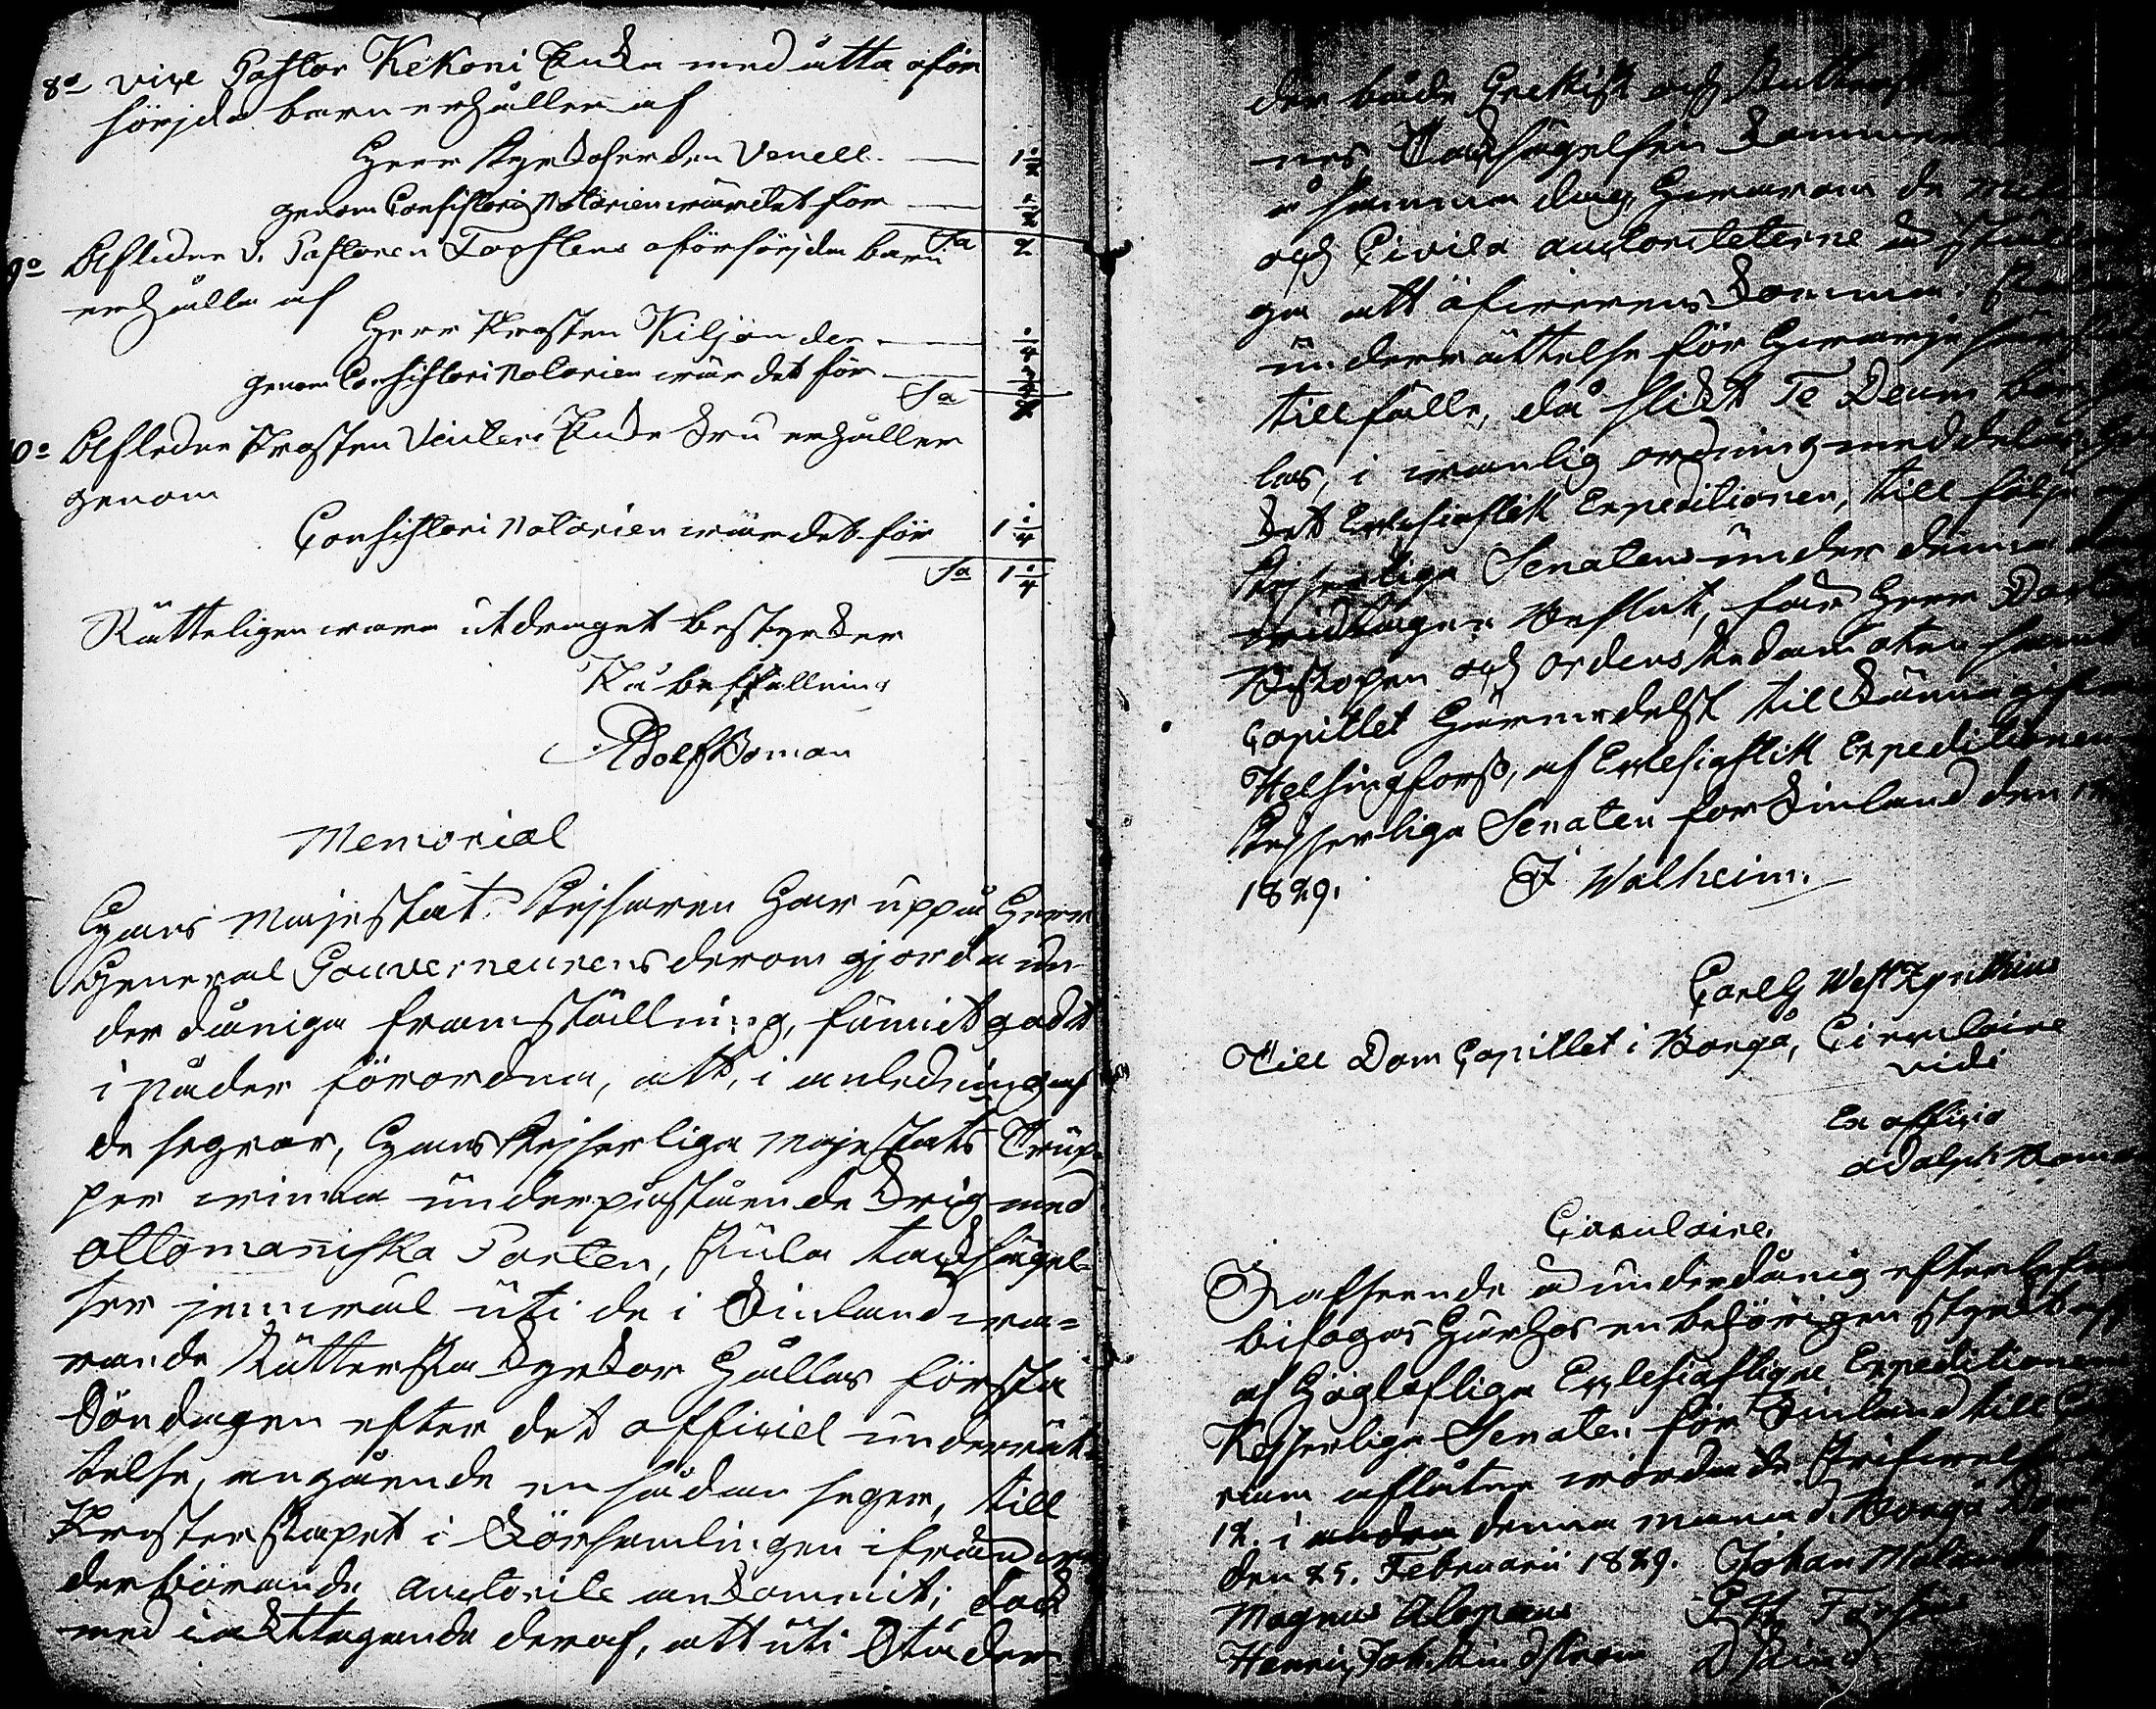 8o vice Pastor Kekoni Enka med åtta oför
sörjda barn erhåller af
Herr Kyrkoherden Venell — 1 1/2
genom Consistorii Notarien värdet för — 1/2
Sa 2
9o Afledne V. Pastoren Topstens oförsörjda barn
erhålla af
Herr Prosten Kiljander — 1/4
genom Consistori Notarien värdet för —
Sa
10o Afledne Prosten Winters Enke Fru erhåller
genom
Consistori Notarien värdet för 1 1/4
Sa 1 1/4
Rätteligen vara utdraget bestyrker
På befallning
Adolf Boman
Memorial
Hans Majestät Kejsaren har uppå Herr
General Gouverneurens derom gjorda un-
derdåniga framställning, funnit godt
i nåder förordna, att, i anledning af
de segrar, Hans Kejserliga Majestäts Trup-
per vinna under påstående Krig med
Ottomaniska Porten, skola tacksägel-
ser jemväl uti de i Finland va=
rande Lutherska Kyrkor hållas första
Söndagen efter det officiel underrät-
telse, angående en sådan seger, till
Presterskapet i Församlingen ifrån ve-
derbörande auctorite ankommit; dock
med iakttagande deraf, att uti Städer
der både Grekisk och Luthersk
nes, Tacksägelsen kommer
å samma dag, hvarom de Mili
och Civila auctoriteterne
ga att öfverenskomma.
underrättelse för hvarje särskilt
tillfälle, då slikt Te Deum bör hål
las, i vanlig ordning meddelas ge
Det Ecklesiastik Expeditionen, till följe af
Kejserliga Senatens under denna dag
vidtagne Beslut, får Herr Doctorn
Biskopen och Ordens Ledamoten samt
Capitlet härmedelst tillkännagifva
Helsingfors, af Ecklesiastik Expeditionen
Kejserliga Senaten för Finland den
1829. F Walheim.
Carl G Westzynthius
Till Dom Capitlet i Borgå, Circulaire
vidi
Ex officio
Adolph Boman
Circulaire.
I afseende å underdånig efterlefnad
bifogas härhos en behörigen styrkt af
af Högloflige Ecklesiastique Expeditionen
Kejserliga Senaten för Finland till
rum aflåtne vordade Skrifvelse
12. i denna månad. Borgå Dom
den 25. Februarii 1829. Johan Molander
Magnus Alopaeus
Henric Joh.